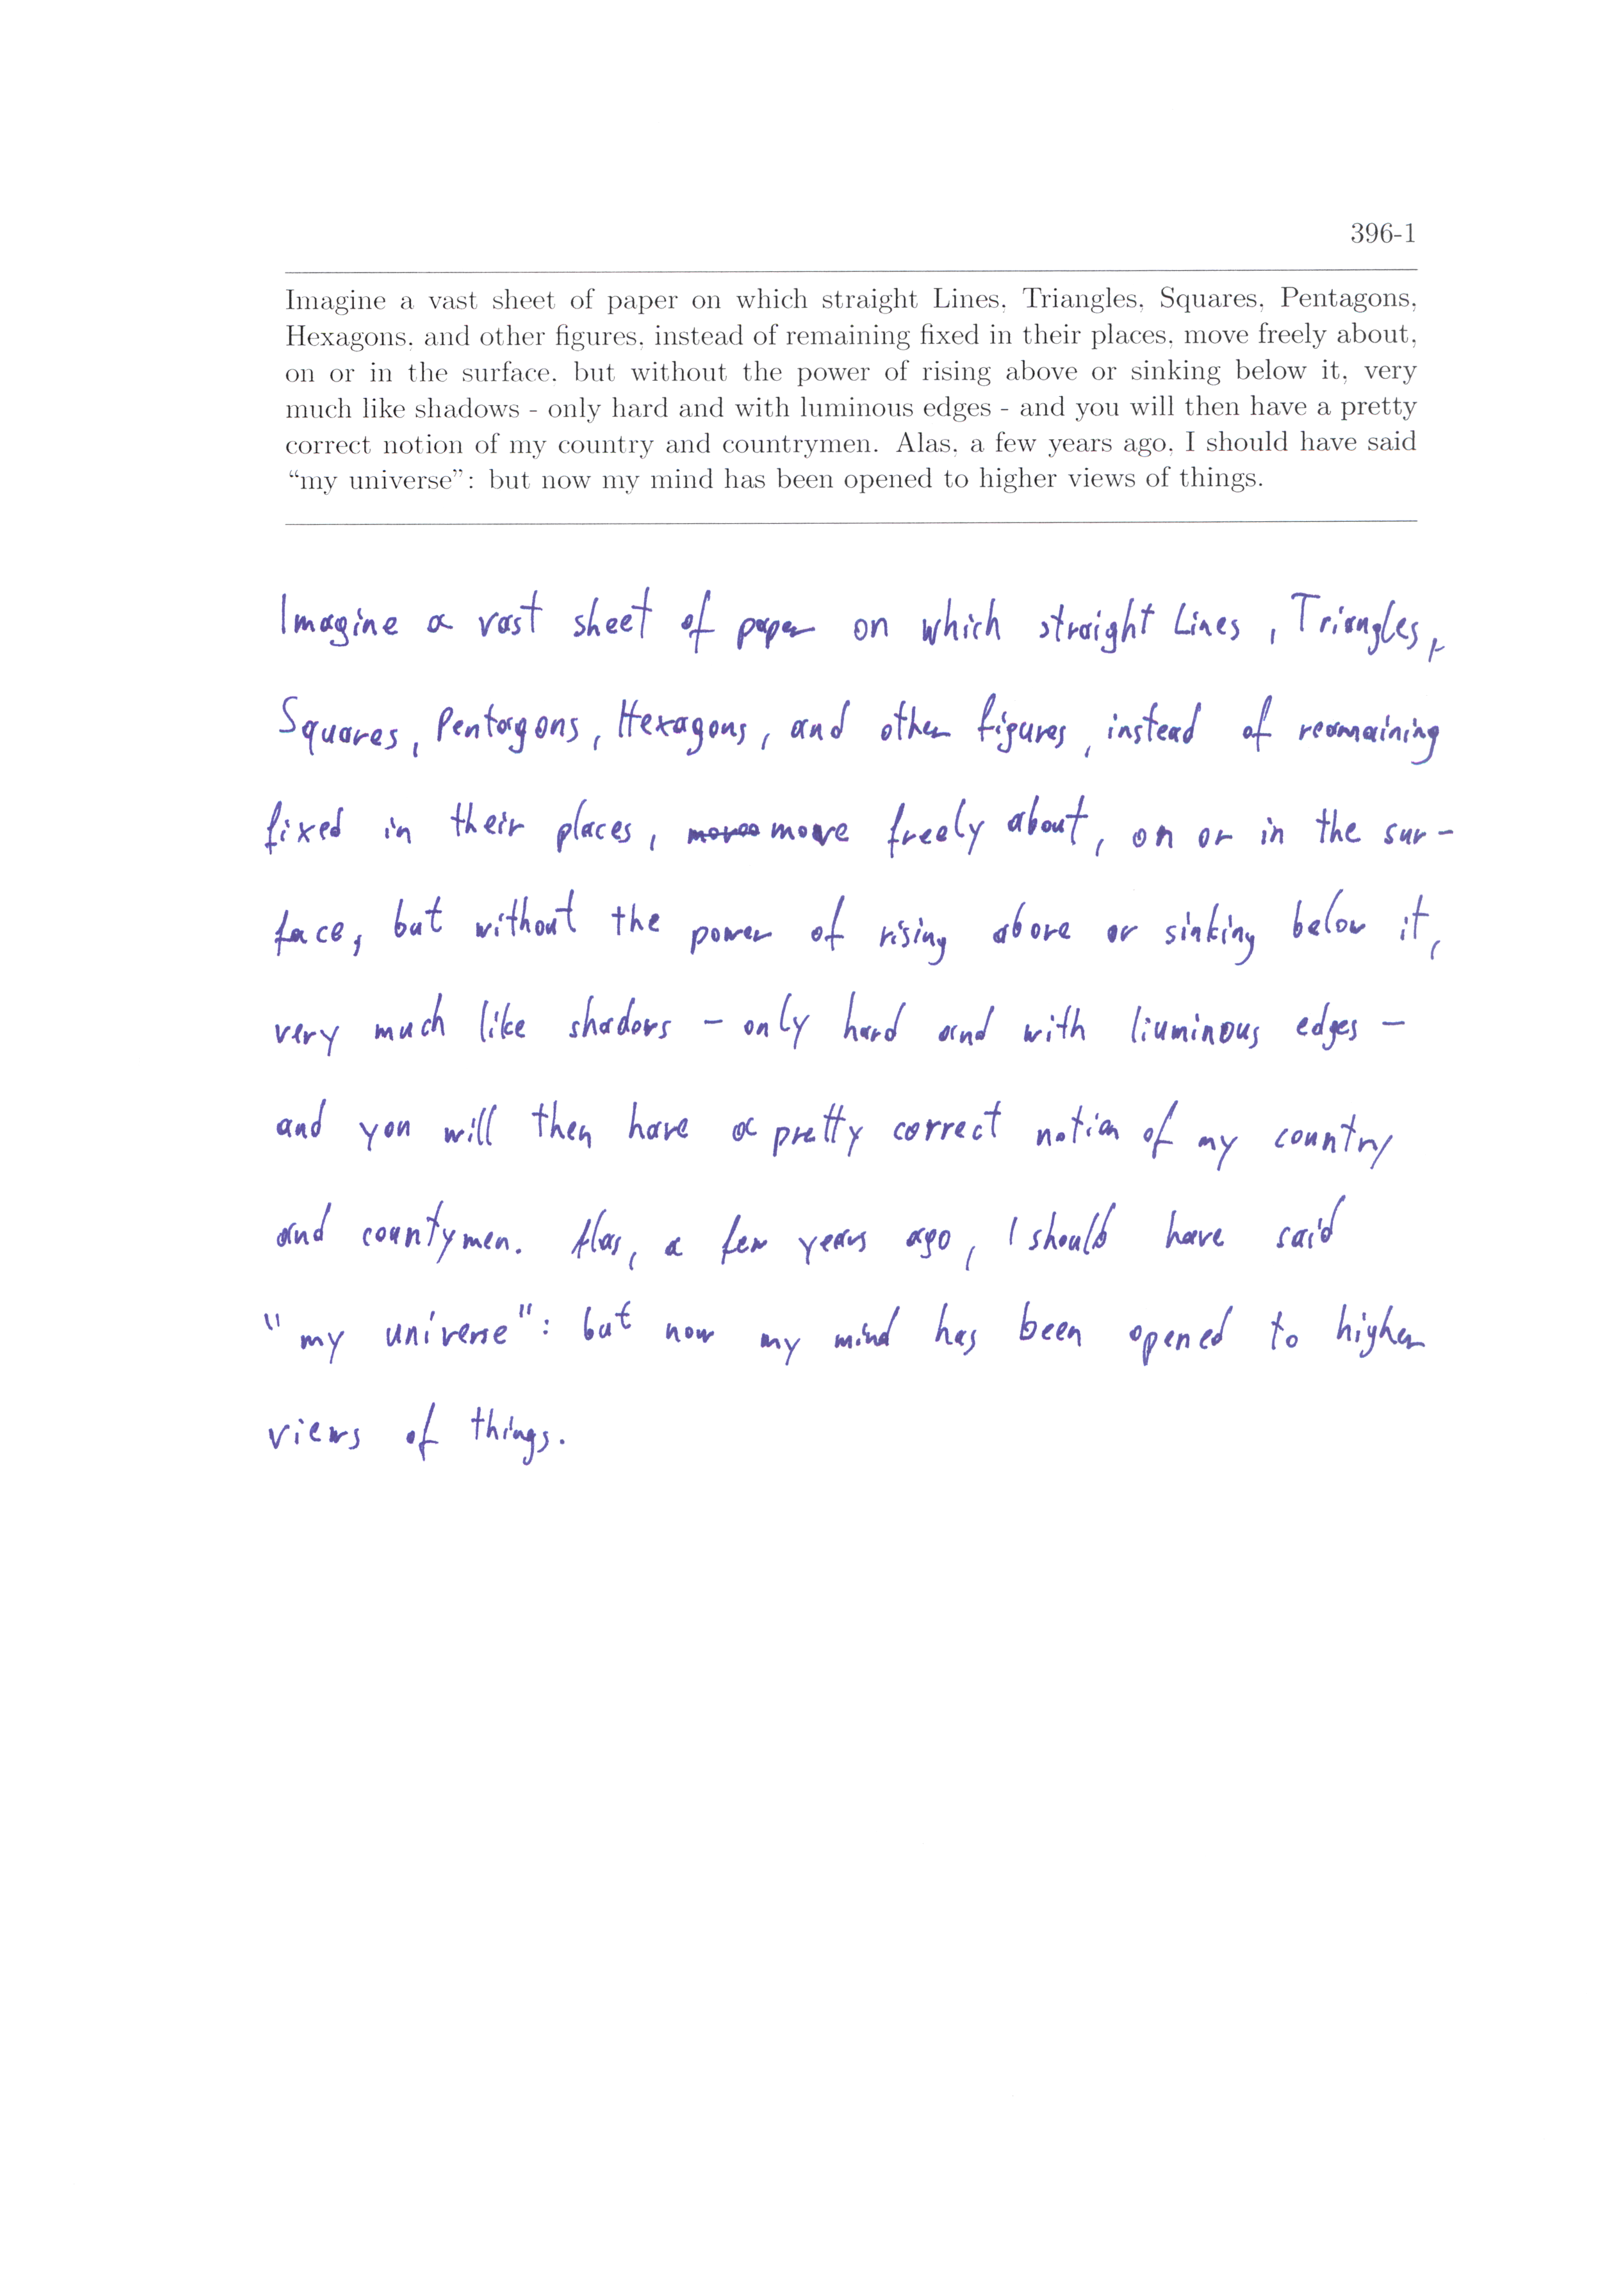 396-1
Imagine a vast sheet of paper on which straight Lines, Triangles, Squares, Pentagons,
Hexagons, and other figures, instead of remaining fixed in their places, move freely about,
on or in the surface, but without the power of rising above or sinking below it, very
much like shadows - only hard and with luminous edges - and you will then have a pretty
correct notion of my country and countrymen. Alas, a few years ago, I should have said
“my universe”: but now my mind has been opened to higher views of things.
Imagine a vast sheet of paper on which straight Lines, Triangles,
Squares, Pentagons, Hexagons, and other figures, instead of reomaining
fixed in their places, move freely about, on or in the sur-
face, but without the power of rising above or sinking below it,
very much like shadows - only hard and with liuminous edges -
and you will then have a pretty correct notion of my country
and countymen. Alas, a few years ago, I should have said
"my universe": but now my mind has been opened to higher
views of things.